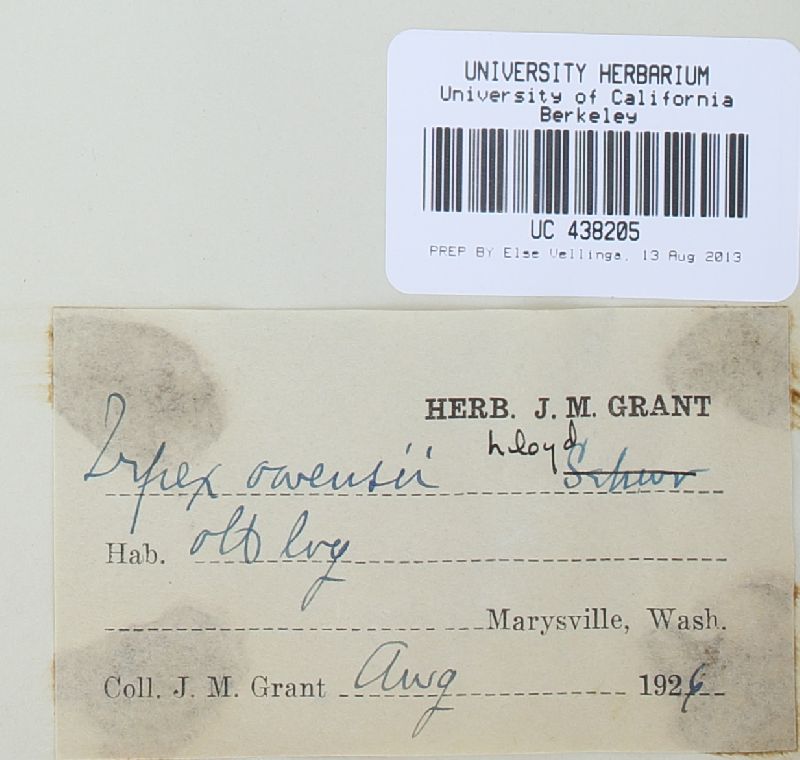 UNIVERSITY HERBARIUM
University of California
Berkeley
UC 438205
PREP BY Else Vellinga, 13 Aug 2013
HERB. J. M. GRANT
Irpex owensii Lloyd Schwr
Hab. old log
Marysville, Wash.
Coll. J. M. Grant Aug 1926